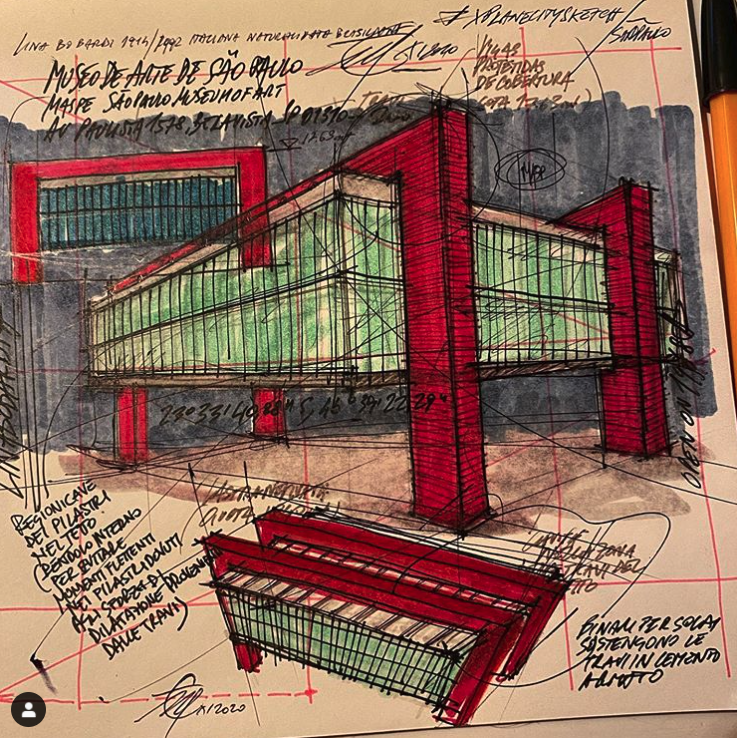 LINA BO BARDI 1914/1992 ITALIANA NATURALIZZATA BRASILIANA
#XPLANECITYSKETCH/
SÃO PAULO
MUSEO DE ARTE DE SÃO PAULO
MASPE SÃO PAULO MUSEUM OF ART
AV PAULISTA 1578, BELA VISTA SP 01310-
XI/2020
VIGAS
PROTENDIDAS
DE COBERTURA
LINA BO BARDI
23°33'40.28" S, 46°39'22.29"
OPEN ON 1968
REGIONI CAVE
DEI PILASTRI
NEL TETTO
(PENDOLO INTERNO
PER EVITARE
MOMENTI FLETTENTI
NEI PILASTRI DOVUTI
AGLI SFORZI DI
DILATAZIONE PROVENIENTI
DALLE TRAVI)
BINARI PER SOLAI
SOSTENGONO LE
TRAVI IN CEMENTO
ARMATO
XI/2020